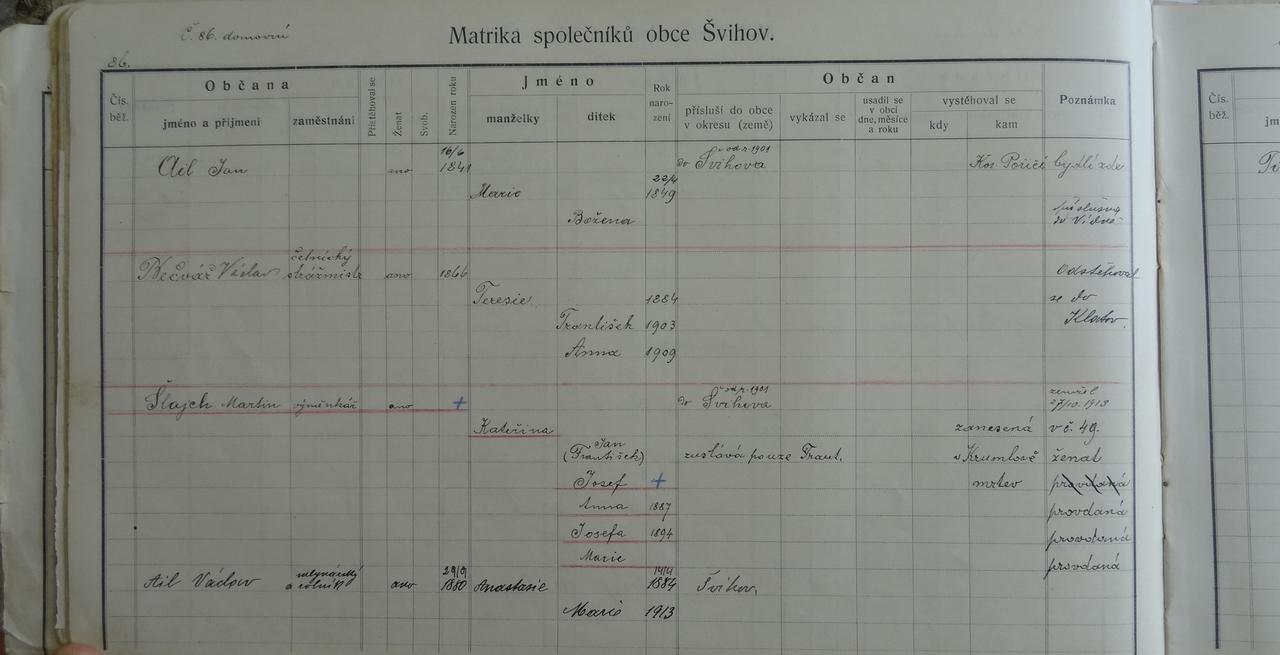 Č. 86. domovní
Matrika společníků obce Švihov.
86.
Čís. běž.
Občana
jméno a příjmení
zaměstnání
Přistěhoval se
Ženat
Svob.
Narozen roku
Jméno
manželky
dítek
Rok naro- zení
Občan
přísluší do obce v okresu (země)
vykázal se
usadil se v obci dne, měsíce a roku
vystěhoval se
kdy
kam
Poznámka
Čís. běž.
Ail Jan ano 16/6 1841 do Švihova od r. 1901 Kos. Poříčí bydlí zde
Marie 22/4 1849
Božena příslušná do Vídně
Václav četnický strážmistr ano 1866 Odstěhoval
Teresie 1884 se do
František 1903 Klatov.
Anna 1909
Šlajch Martin výměnkář ano + do Švihova od r. 1901 zemřel 27/10. 1913
Kateřina zanesená v č. 49.
Jan
(František) zůstává pouze Frant. v Krumlově ženat
Josef + mrtev provdaná
Anna 1887 provdaná
Josefa 1894 provdaná
Marie provdaná
Ail Václav mlynářský a rolník ano 29/9 1880 Anastasie 14/4 1884 Švihov,
Marie 1913